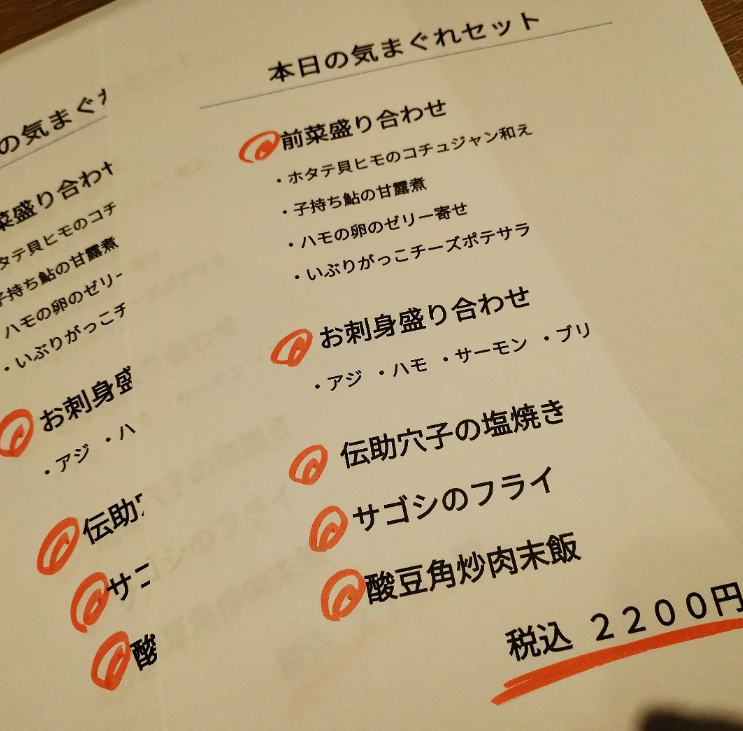 本日の気まぐれセット
前菜盛り合わせ
・ホタテ貝ヒモのコチュジャン和え
・子持ち鮎の甘露煮
・ハモの卵のゼリー寄せ
・いぶりがっこチーズポテサラ
お刺身盛り合わせ
・アジ ・ハモ ・サーモン ・ブリ
伝助穴子の塩焼き
サゴシのフライ
酸豆角炒肉末飯
税込 2200円
の気まぐれ
菜盛り合わせ
タテ貝ヒモのコチ
子持ち鮎の甘露煮
ハモの卵のゼリー
・いぶりがっこチ
お刺身盛
・アジ ・ハ
伝助
サゴ
酸